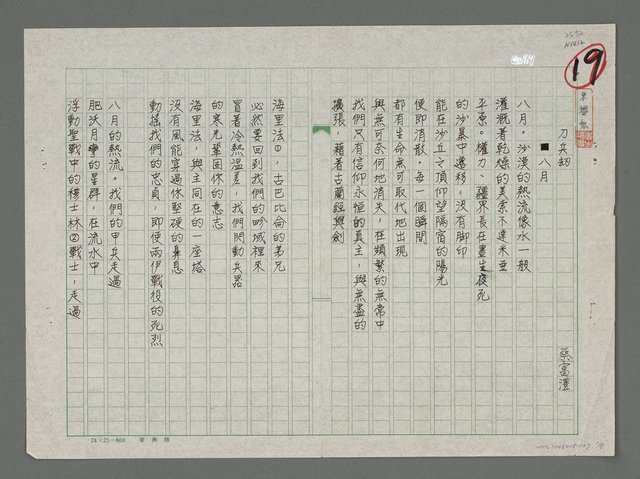 19
刀兵劫
■八月
蔡富澧
八月。沙漠的熱流像水一般
灌溉著乾燥的美索不達米亞
平原。權力、疆界長在晝生夜死
的沙暴中遷移，沒有腳印
能在沙丘之頂仰望隔宿的陽光
便即消散。每一個瞬間
都有生命無可取代地出現
與無可奈何地消失，在頻繁的無常中
我們只有信仰永恒的真主，與無盡的
擴張，藉著古蘭經與劍
海里法①，古巴比倫的弟兄
必然要回到我們的畛域裡來
冒著冷熱溫差，我們閃動兵器
的寒光鞏固你的意志
海里法，與主同在的一座塔
沒有風能穿過你堅硬的鼻息
動搖我們的忠貞，即使兩伊戰役的死烈
八月的熱流。我們的甲兵走過
肥沃月彎的星群，在流水中
浮動聖戰中的穆士林②戰士，走過
24×25=600